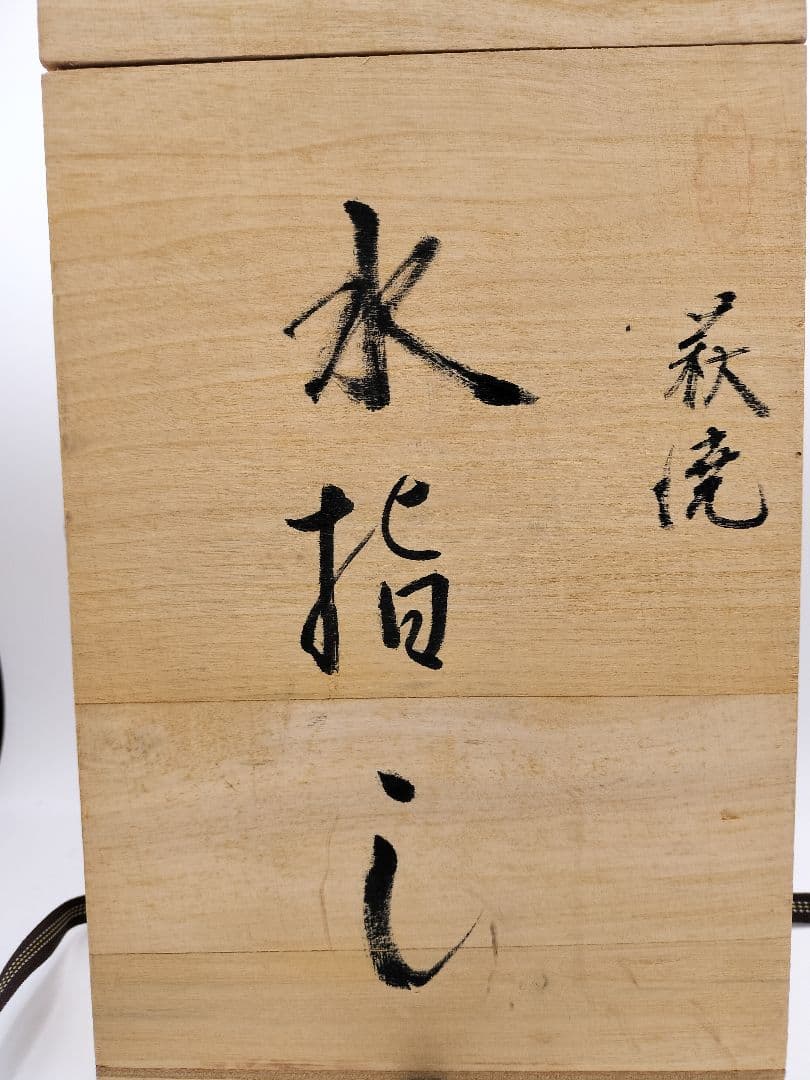 萩焼
水指し